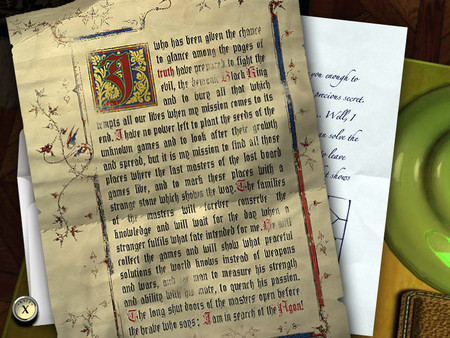 I who has been given the chance
to glance among the pages of
truth have prepared to fight the
evil, the demonic Black King
and to bury all that which
tempts all our lives when my mission comes to its
end. I have no power left to plant the seeds of the
unknown games and to look after their growth
and spread, but it is my mission to find all those
places where the last masters of the lost board
games live, and to mark these places with a
strange stone which shows the way. The families
of the masters will forever conserve the
knowledge and will wait for the day when a
stranger fulfils what fate intended for me. He will
collect the games and will show what peaceful
solutions the world knows instead of weapons
and wars, and man to measure his strength
and ability with his mate, to quench his passion.
The long shut doors of the masters open before
the brave who says: I am in search of the Agon!
you enough to
precious secret.
... Well, I
can solve the
to leave
shows
X